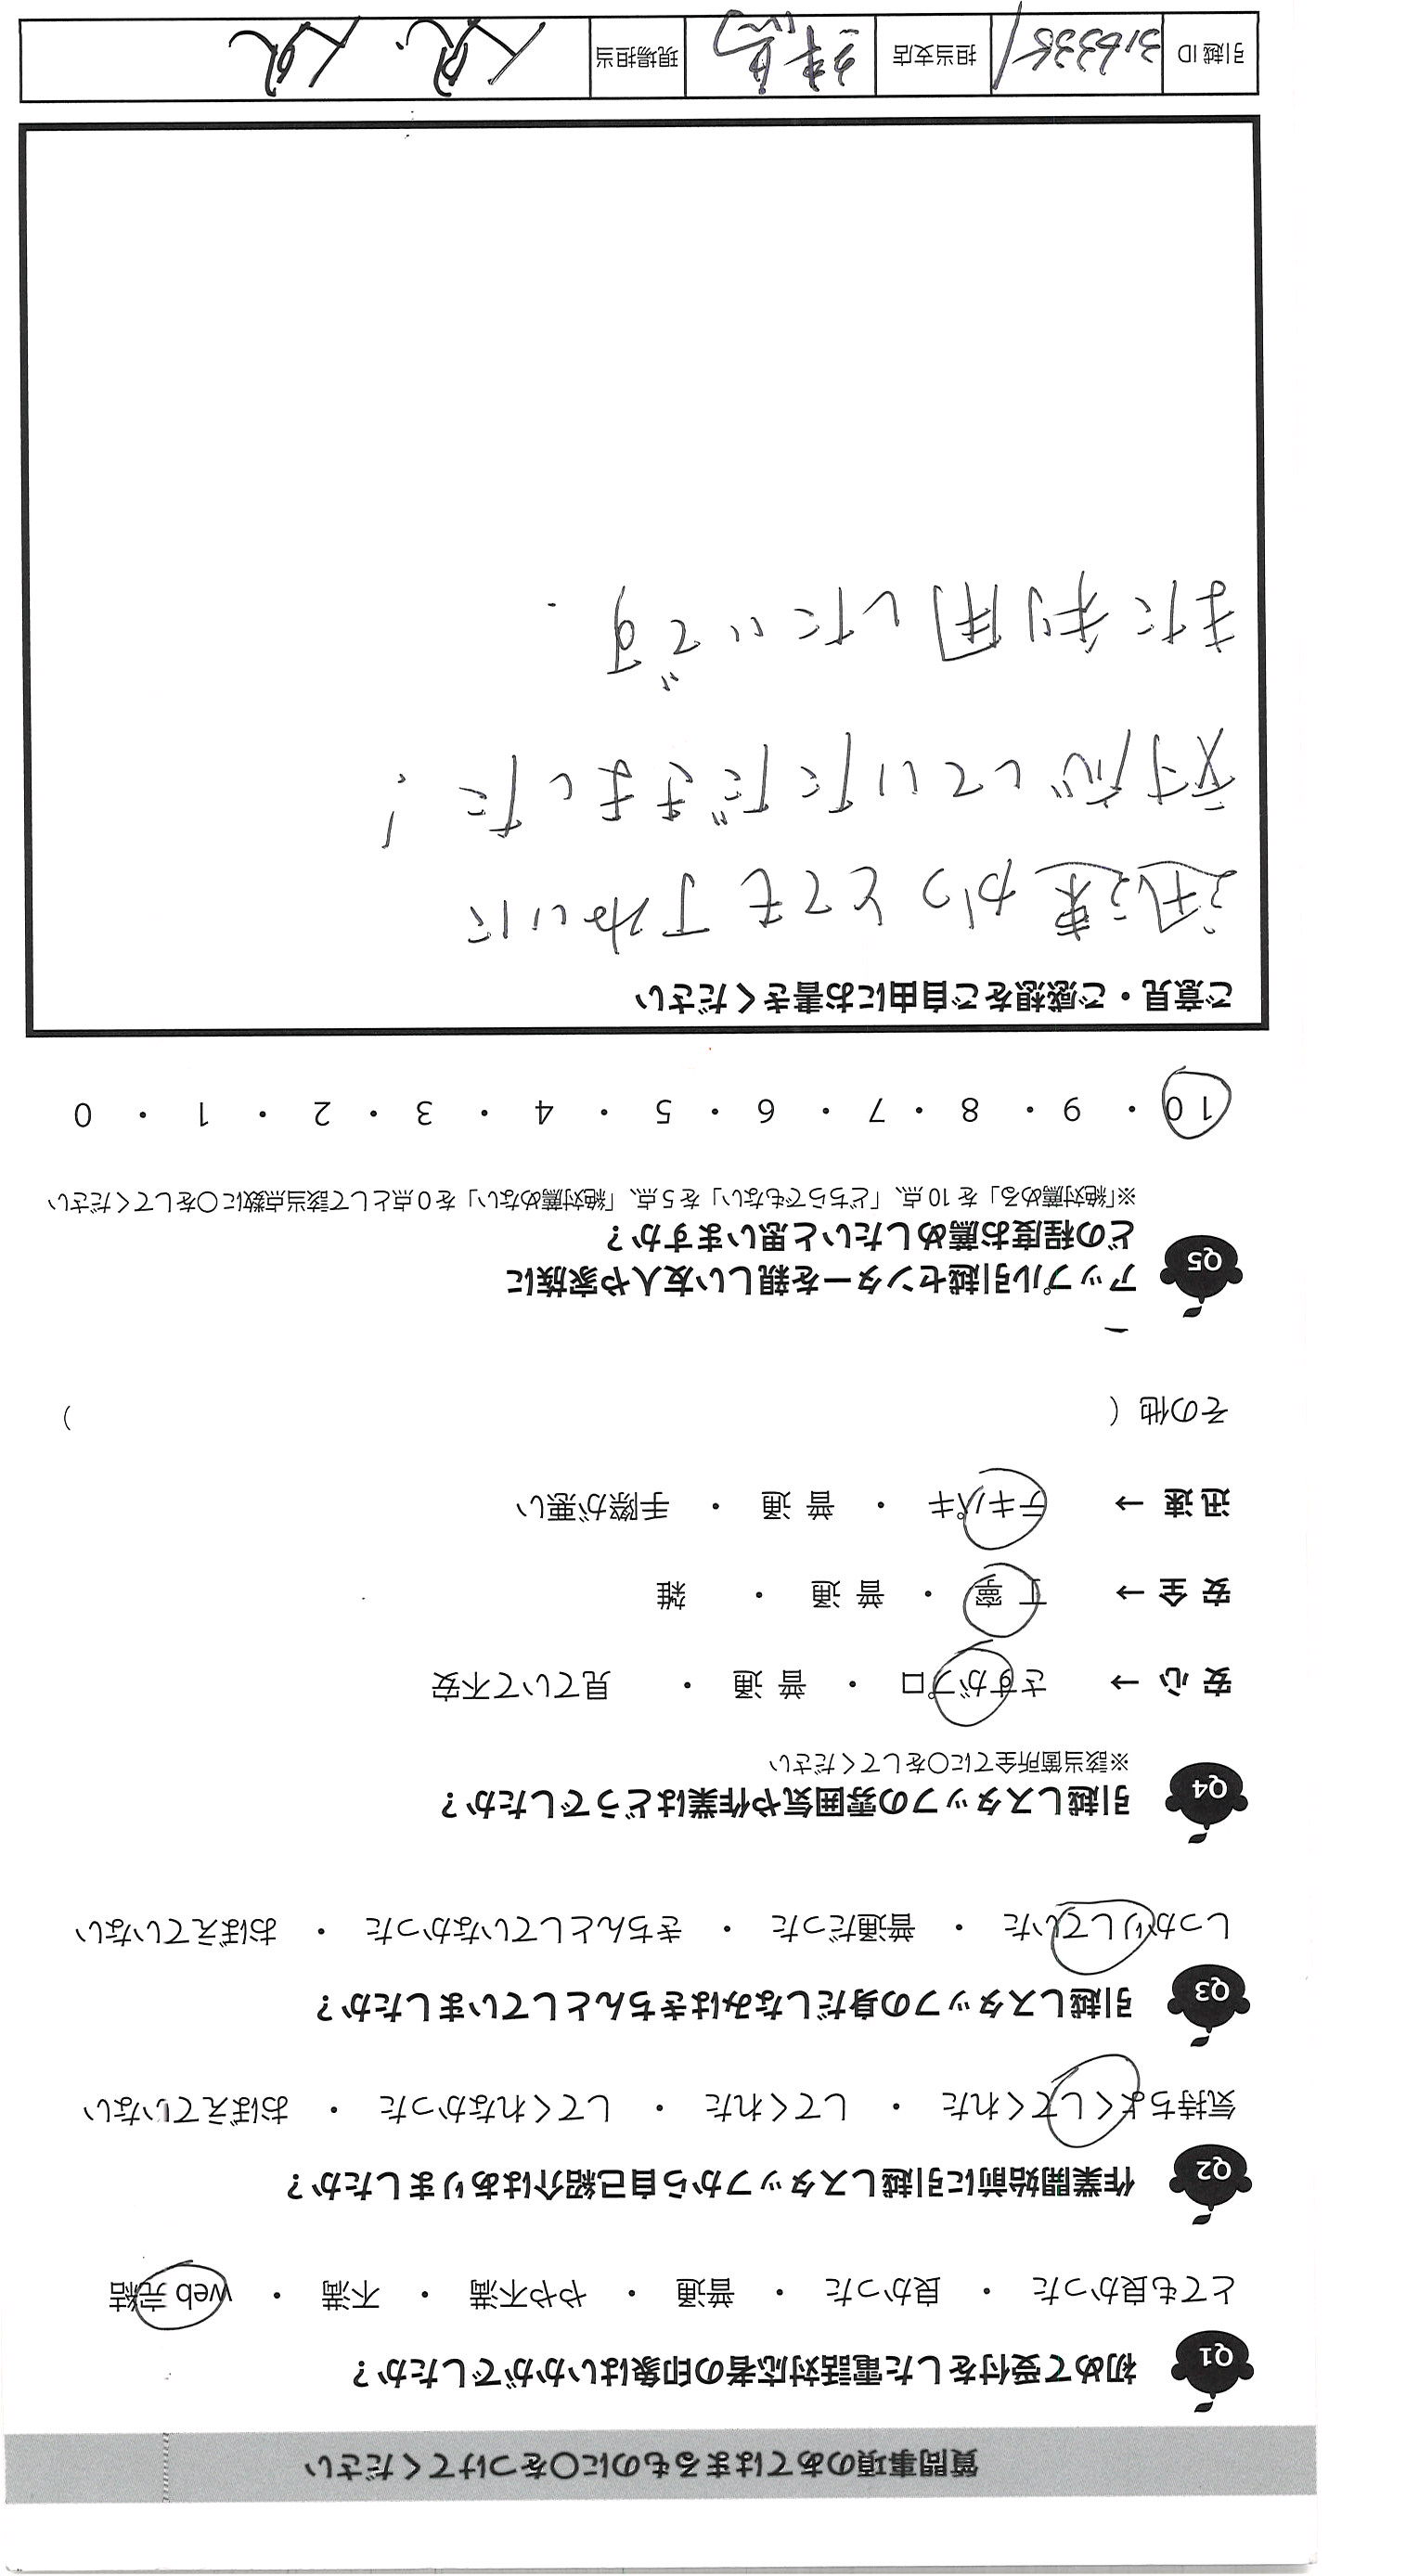 質問事項のあてはまるものに○をつけてください
Q1 初めて受付をした電話対応者の印象はいかがでしたか？
とても良かった ・ 良かった ・ 普通 ・ やや不満 ・ 不満 ・ web 完結
Q2 作業開始前に引越しスタッフから自己紹介はありましたか？
気持ちよくしてくれた ・ してくれた ・ してくれなかった ・ おぼえていない
Q3 引越しスタッフの身だしなみはきちんとしていましたか？
しっかりしていた ・ 普通だった ・ きちんとしていなかった ・ おぼえていない
Q4 引越しスタッフの雰囲気や作業はどうでしたか？
※該当箇所全てに○をしてください
安心 → さすがプロ ・ 普通 ・ 見ていて不安
安全 → 丁寧 ・ 普通 ・ 雑
迅速 → テキパキ ・ 普通 ・ 手際が悪い
その他（ ）
Q5 アップル引越センターを親しい友人や家族に
どの程度お薦めしたいと思いますか？
※「絶対薦める」を10点、「どちらでもない」を5点、「絶対薦めない」を0点として該当点数に○をしてください
10 ・ 9 ・ 8 ・ 7 ・ 6 ・ 5 ・ 4 ・ 3 ・ 2 ・ 1 ・ 0
ご意見・ご感想をご自由にお書きください
迅速かつとても丁ねいに
対応していただきました！
また利用したいです．
引越ID 担当支店 現場担当